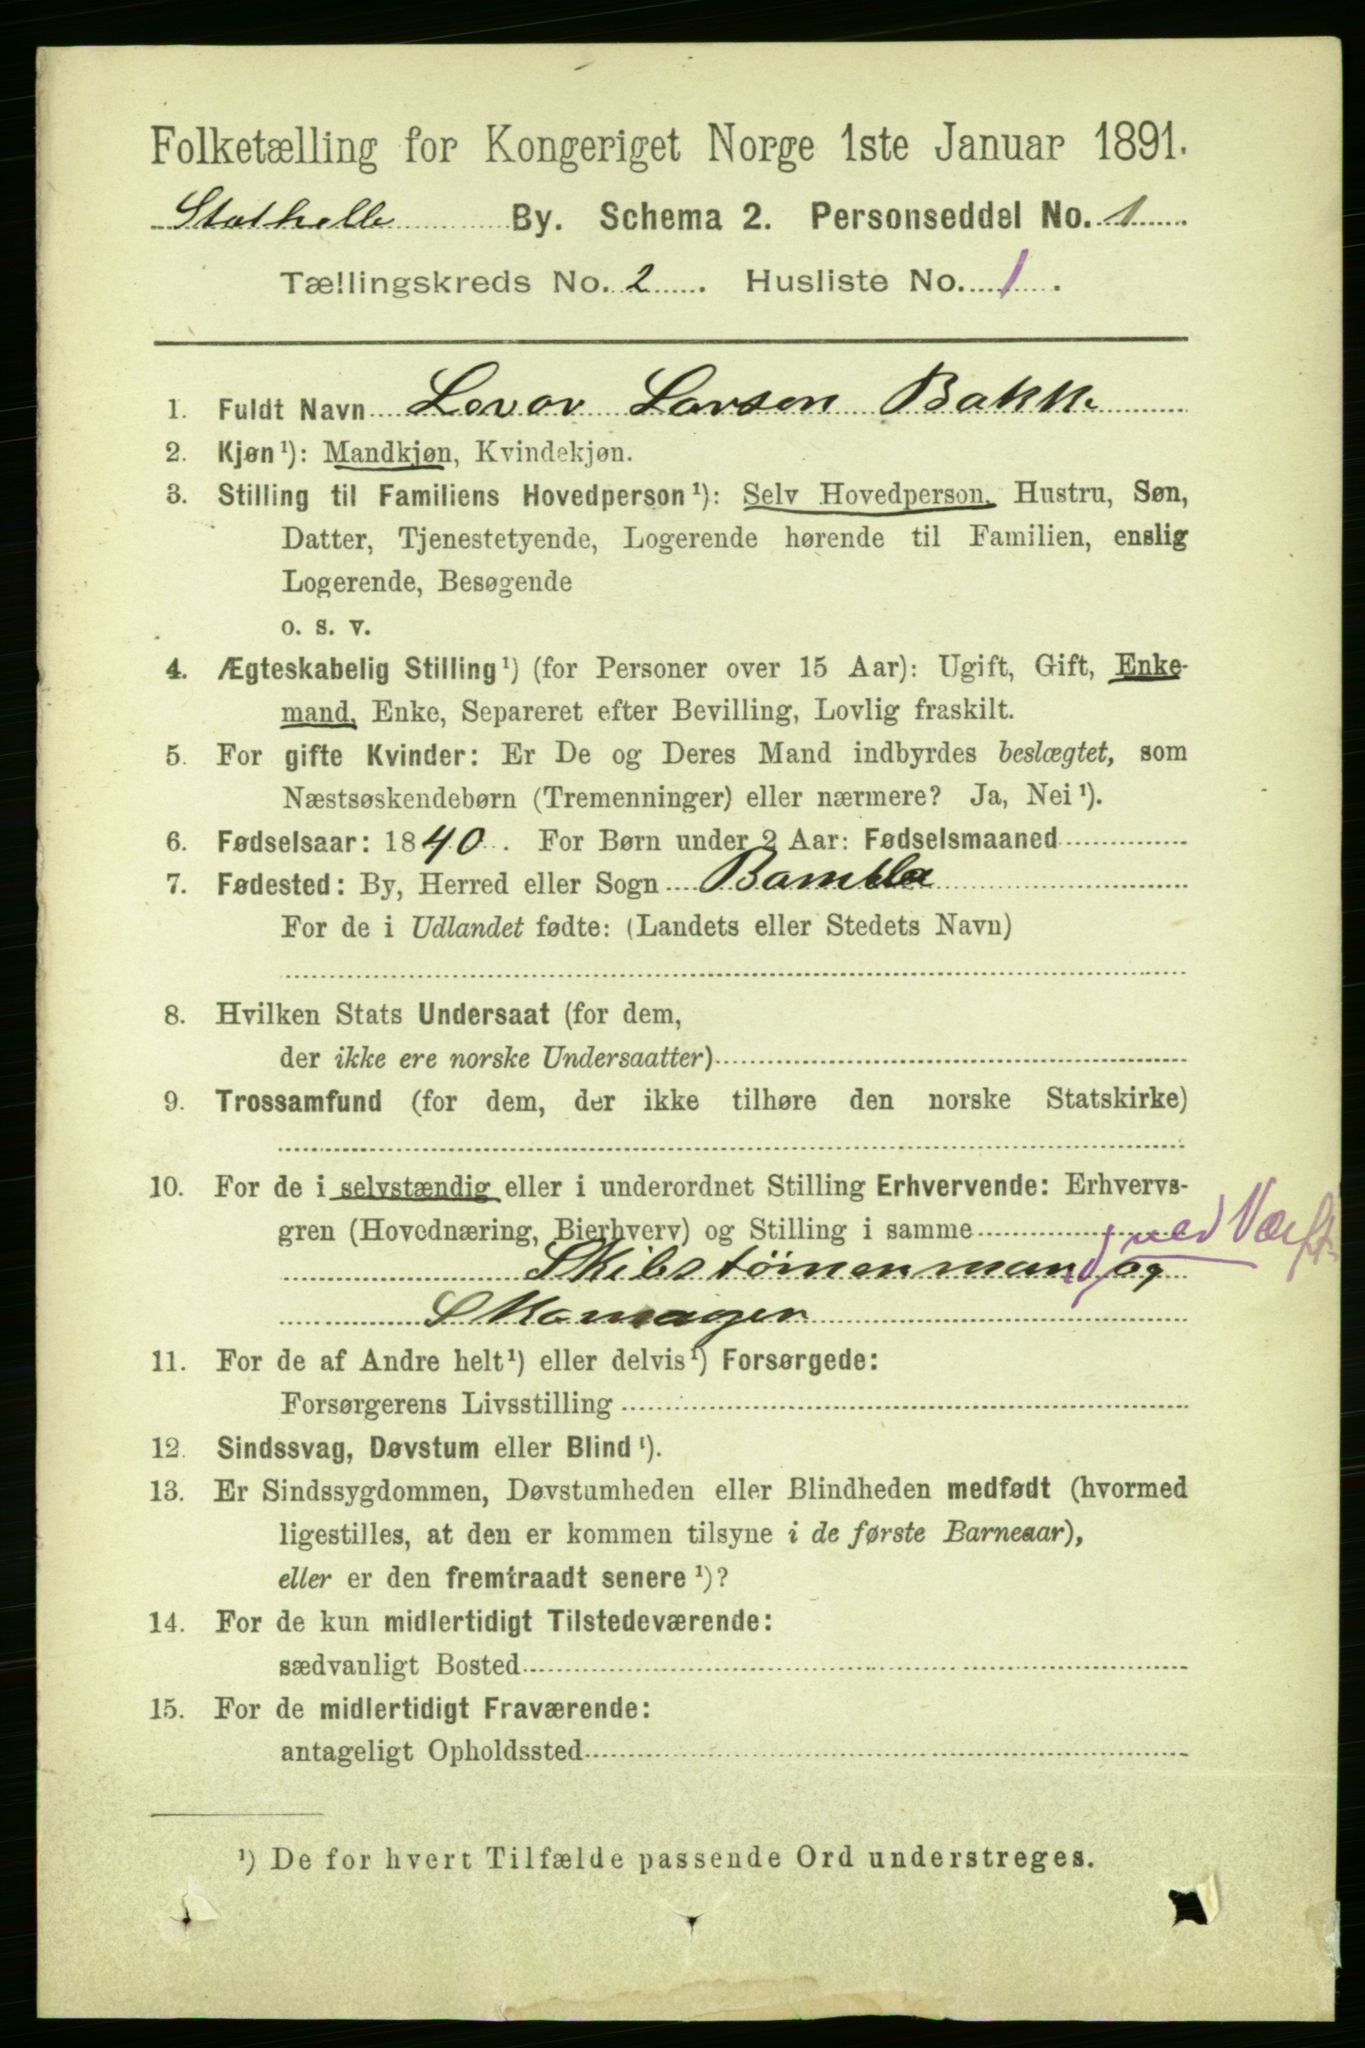 Folketælling for Kongeriget Norge 1ste Januar 1891.
Stathelle By. Schema 2. Personseddel No. 1
Tællingskreds No. 2. Husliste No. 1.
1. Fuldt Navn Lavor Larsen Bakke
2. Kjøn¹): Mandkjøn, Kvindekjøn.
3. Stilling til Familiens Hovedperson¹): Selv Hovedperson, Hustru, Søn,
Datter, Tjenestetyende, Logerende hørende til Familien, enslig
Logerende, Besøgende
o. s. v.
4. Ægteskabelig Stilling¹) (for Personer over 15 Aar): Ugift, Gift, Enke-
mand, Enke, Separeret efter Bevilling, Lovlig fraskilt.
5. For gifte Kvinder: Er De og Deres Mand indbyrdes beslægtet, som
Næstsøskendebørn (Tremenninger) eller nærmere? Ja, Nei¹).
6. Fødselsaar: 1840. For Børn under 2 Aar: Fødselsmaaned
7. Fødested: By, Herred eller Sogn Bamble
For de i Udlandet fødte: (Landets eller Stedets Navn)
8. Hvilken Stats Undersaat (for dem,
der ikke ere norske Undersaatter)
9. Trossamfund (for dem, der ikke tilhøre den norske Statskirke)
10. For de i selvstændig eller i underordnet Stilling Erhvervende: Erhvervs-
gren (Hovednæring, Bierhverv) og Stilling i samme ved Værft
Skibstömenmand og
Skomager
11. For de af Andre helt¹) eller delvis¹) Forsørgede:
Forsørgerens Livsstilling
12. Sindssvag, Døvstum eller Blind¹).
13. Er Sindssygdommen, Døvstumheden eller Blindheden medfødt (hvormed
ligestilles, at den er kommen tilsyne i de første Barneaar),
eller er den fremtraadt senere¹)?
14. For de kun midlertidigt Tilstedeværende:
sædvanligt Bosted
15. For de midlertidigt Fraværende:
antageligt Opholdssted
¹) De for hvert Tilfælde passende Ord understreges.